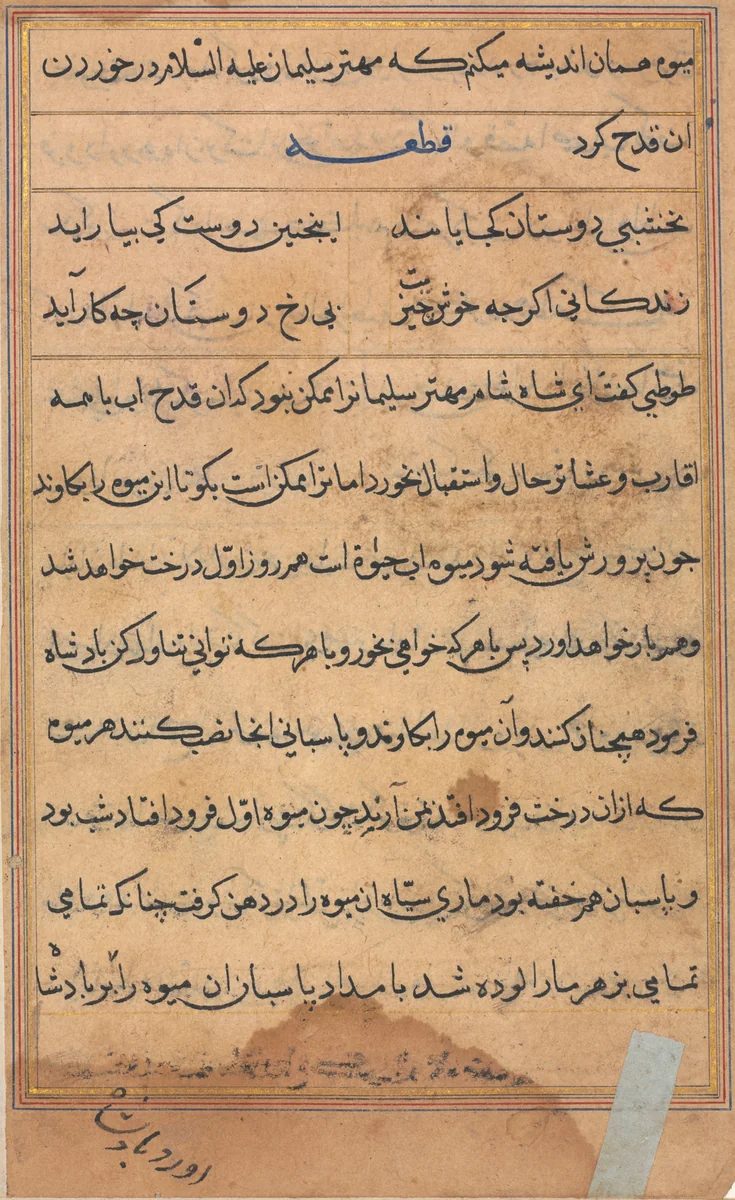 میوه همان اندیشه میکنم که مهتر سلیمان علیه السلام در خوردن
ان قدح کرد قطعه
نخشبی دوستان کجا یابند اینچنین دوست کی بیاراید
زندکانی اکرچه خوش چیزیست بی رخ دوستان چه کار آید
طوطی کفت ای شاه شاهر مهتر سلیمانرا ممکن نبود کدان قدح اب با همه
اقارب و عشائر حال و استقبال نخورد اما ترا ممکن است بکو تا این میوه را بکاوند
جون پرورش یافته شود میوه اب حیوة است هم روز اوّل درخت خواهد شد
و هم بار خواهد اورد پس با هرکه خواهی بخور و با هرکه توانی تناول کن بادشاه
فرمود همچنان کنند و آن میوه را بکاوند و پاسبانی انجا نصب کنند هر میوه
که ازان درخت فرود افتد بمن آرید چون میوه اوّل فرود افتاد شب بود
و پاسبان هم خفته بود ماری سیاه ان میوه را در دهن کرفت چنانکه تمامی
تمامی بزهر مار الوده شد بامداد پاسبان ان میوه را بر بادشاه
اورد بادشاه